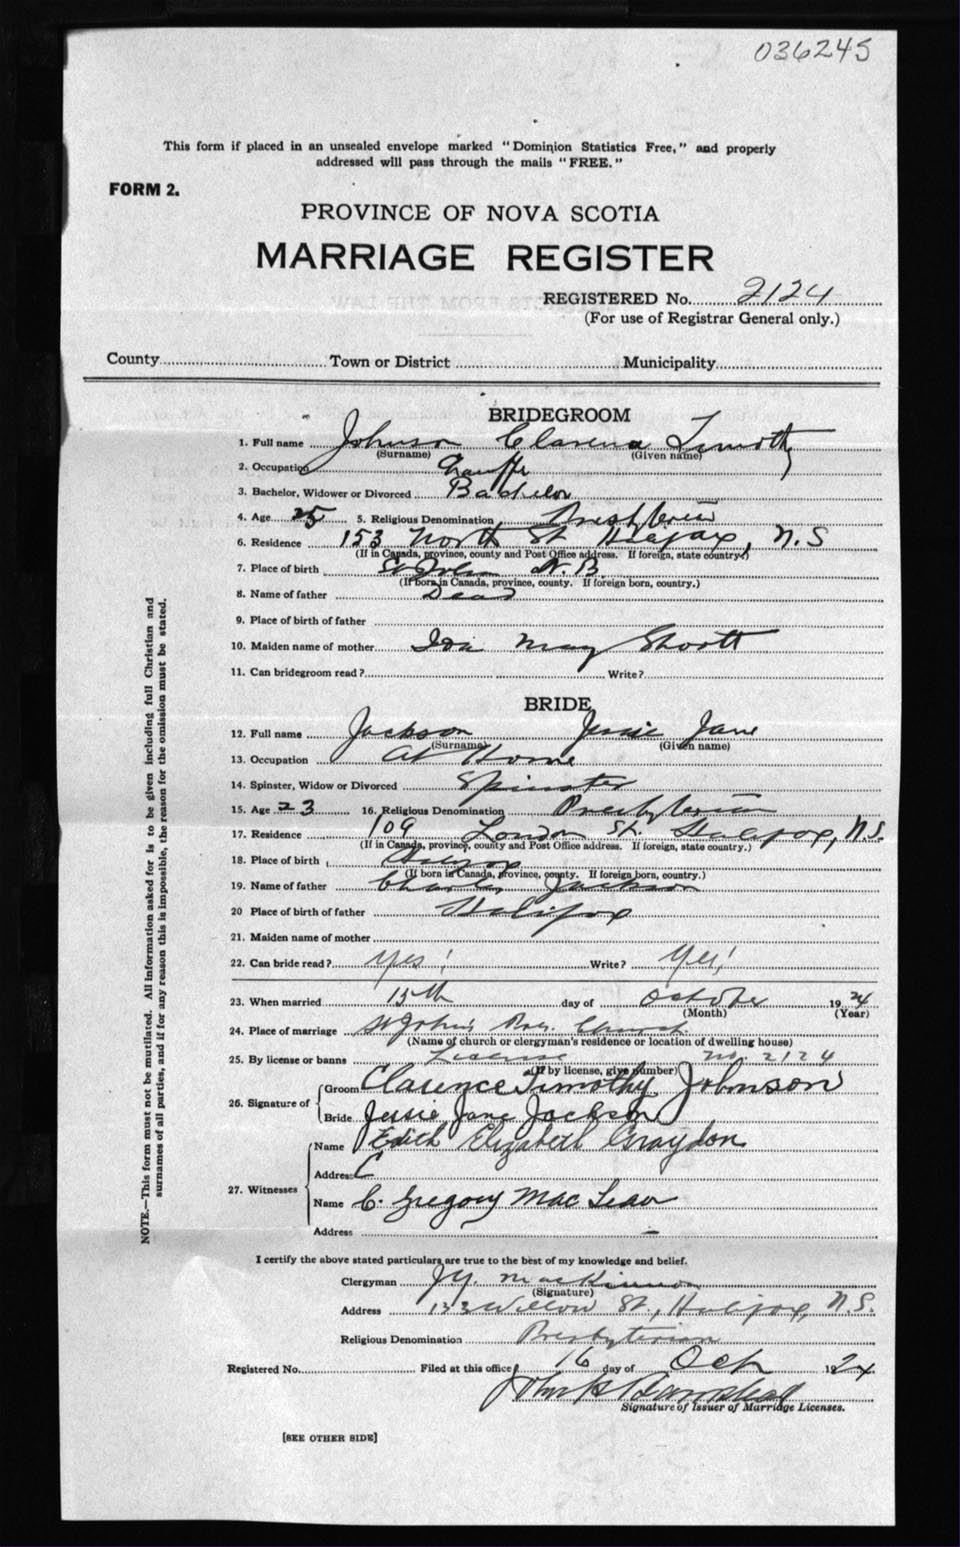 036245
This form if placed in an unsealed envelope marked "Dominion Statistics Free," and properly
addressed will pass through the mails "FREE."
FORM 2.
PROVINCE OF NOVA SCOTIA
MARRIAGE REGISTER
REGISTERED No. 2124
(For use of Registrar General only.)
County Town or District Municipality
BRIDEGROOM
1. Full name Johnson Clarence Timothy
(Surname) (Given name)
2. Occupation
3. Bachelor, Widower or Divorced Bachelor
4. Age 25 5. Religious Denomination
6. Residence 153 North St Halifax, N.S
(If in Canada, province, county and Post Office address. If foreign, state country.)
7. Place of birth St John N.B.
(If born in Canada, province, county. If foreign born, country.)
8. Name of father Dead
9. Place of birth of father
10. Maiden name of mother Ida May Shortt
11. Can bridegroom read? Write?
BRIDE
12. Full name Jackson Jessie Jane
(Surname) (Given name)
13. Occupation At Home
14. Spinster, Widow or Divorced Spinster
15. Age 23 16. Religious Denomination Presbyterian
17. Residence 109 London St. Halifax, N.S.
(If in Canada, province, county and Post Office address. If foreign, state country.)
18. Place of birth Halifax
(If born in Canada, province, county. If foreign born, country.)
19. Name of father Charles Jackson
20 Place of birth of father Halifax
21. Maiden name of mother
22. Can bride read? Yes! Write? Yes!
23. When married 15th day of October 1924
(Month) (Year)
24. Place of marriage St John's Pres. Church
(Name of church or clergyman's residence or location of dwelling house)
25. By license or banns License No. 2124
(If by license, give number)
26. Signature of Groom Clarence Timothy Johnson
Bride Jessie Jane Jackson
27. Witnesses Name Edith Elizabeth Graydon
Address C
Name C. Gregory MacLean
Address
I certify the above stated particulars are true to the best of my knowledge and belief.
Clergyman J.Y. MacKinnon
(Signature)
Address 133 Willow St., Halifax, N.S.
Religious Denomination Presbyterian
Registered No. Filed at this office 16 day of Oct 1924
Signature of Issuer of Marriage Licenses.
[SEE OTHER SIDE]
NOTE.—This form must not be mutilated. All information asked for is to be given including full Christian and
surnames of all parties, and if for any reason this is impossible, the reason for the omission must be stated.